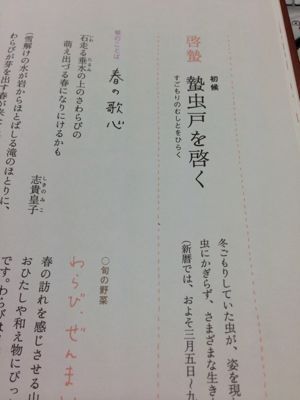 啓蟄
初候
蟄虫戸を啓く
すごもりのむしとをひらく
冬ごもりしていた虫が、姿を現
虫にかぎらず、さまざまな生き
(新暦では、およそ三月五日〜九
旬のことば
春の歌心
石走る垂水の上のさわらびの
萌え出づる春になりにけるかも
志貴皇子
しきのみこ
(雪解けの水が岩からほとばしる滝のほとりに、
わらびが芽を出す春が来
○旬の野菜
わらび・ぜんまい
春の訪れを感じさせる山
おひたしや和え物にぴっ
です。わらびは